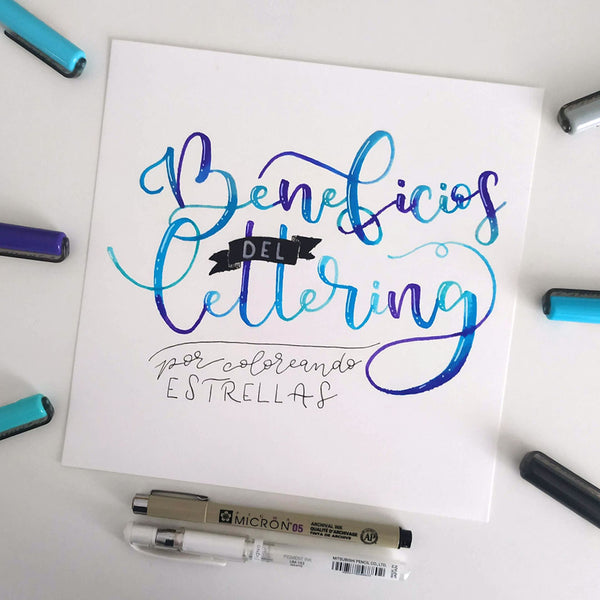 Beneficios
DEL
lettering
por coloreando
ESTRELLAS
PIGMA
MICRON 05
ARCHIVAL INK
QUALITÉ D'ARCHIVAGE
TINTA DE ARCHIVO
AP
PIGMENT INK
MITSUBISHI PENCIL CO., LTD.